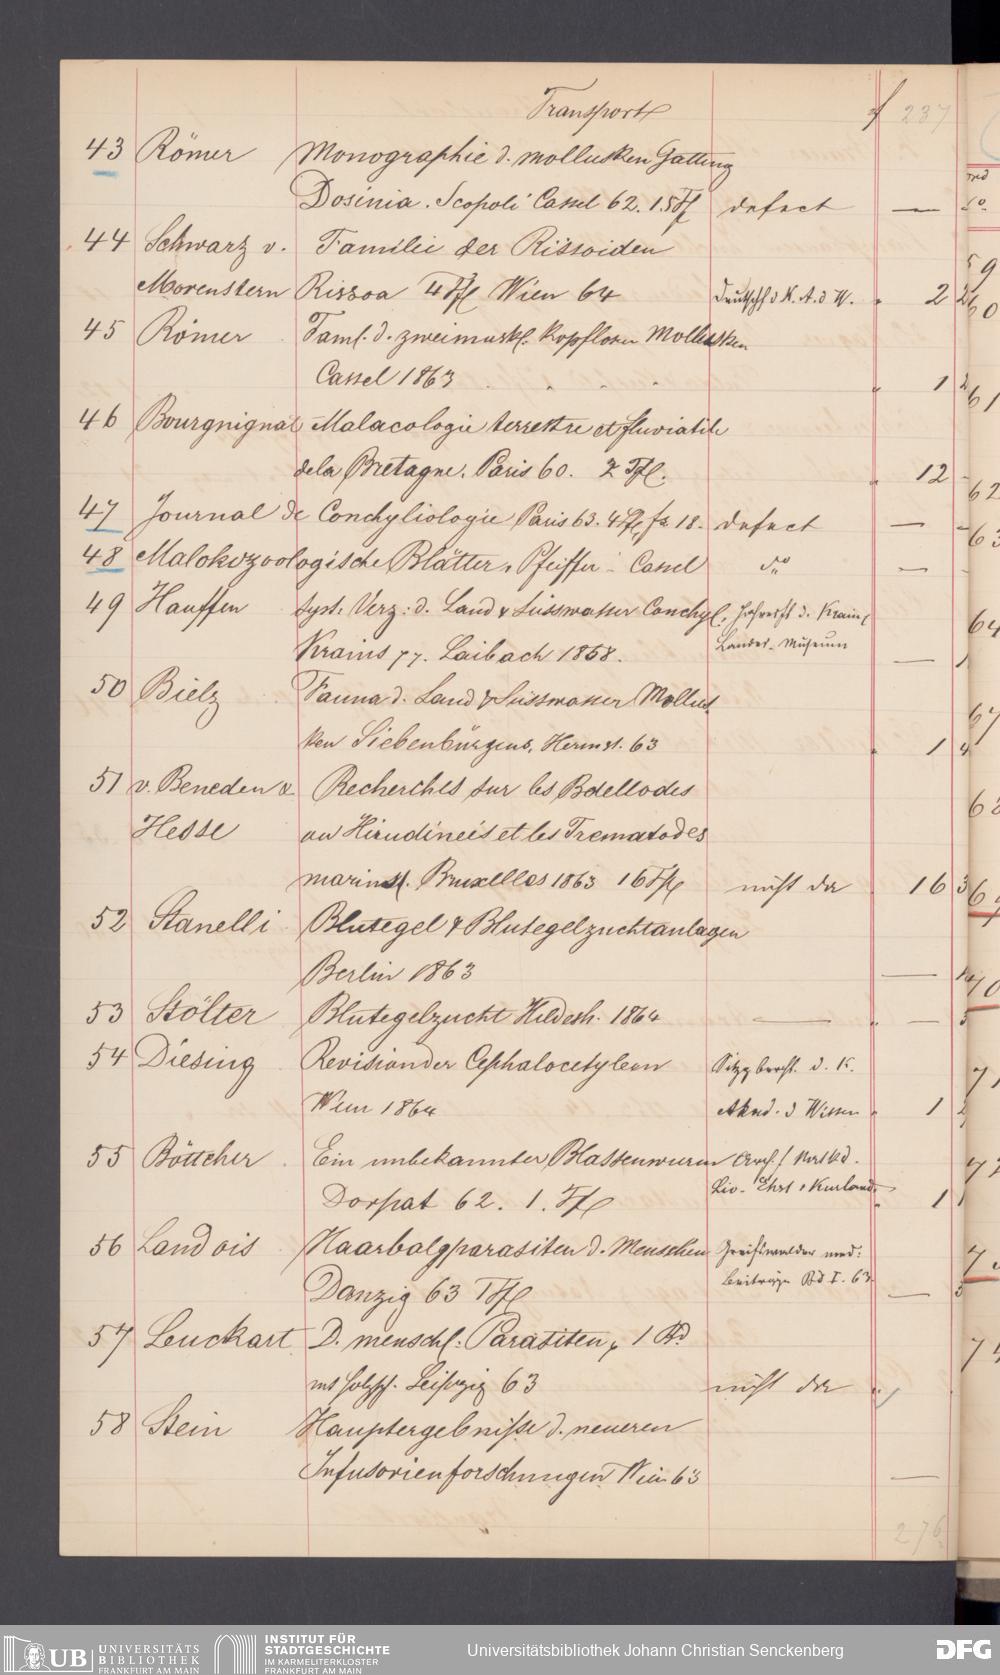 Transport 237
43 Römer Monographie d. Mollusken Gattung
Dosinia. Scopoli Cassel 62. 15 Tfl defect —
44 Schwarz v. Familie der Rissoiden
Morenstern Rissoa 4 Tfl Wien 64 Denkschf d K. A. d W. 2
45 Römer Faml. d. zweimuskl. kopflosen Mollusken
Cassel 1863 1
46 Bourgnignat Malacologie terrestre et fluviatile
dela Bretagne. Paris 60. 2 Tfl. 12
47 Journal de Conchyliologie Paris 63. 4 Tfl, fr 18. defect —
48 Malokozoologische Blätter, Pfeiffer - Cassel do —
49 Hauffen Syst: Verz: d. Land & Süsswasser Conchyl. Jahresft d. Krain
Krains 77. Laibach 1858. Landes-Museum —
50 Bielz Fauna d. Land & Süsswasser Mollus
ken Siebenbürgens, Hermst. 63 1
51 v. Beneden & Recherches sur les Bdellodes
Hesse ou Hirudineés et les Trematodes
marins. Bruxelles 1863 16 Tfl nicht da 16
52 Stanelli Blutegel & Blutegelzuchtanlagen
Berlin 1863 —
53 Stölter Blutegelzucht Hildesh. 1864 — —
54 Diesing Revision der Cephalocotyleen Sitzgbercht. d. K.
Wien 1864 Akad. d Wissen 1
55 Böttcher Ein unbekannter Blassenwurm Arch. f Natkd.
Dorpat 62. 1. Tfl Liv- Ehst & Kurland 1
56 Landois Haarbalgparasiten d. Menschen Greifswalder med:
Danzig 63 1 Tfl Beiträge Bd I. 63. —
57 Leuckart D. menschl. Parasiten, 1 Bd
mt Holzsch. Leipzig 63 nicht da
58 Stein Hauptergebniße d. neueren
Infusorienforschungen Wien 63 —
276
UB UNIVERSITÄTS
BIBLIOTHEK
FRANKFURT AM MAIN
INSTITUT FÜR
STADTGESCHICHTE
IM KARMELITERKLOSTER
FRANKFURT AM MAIN
Universitätsbibliothek Johann Christian Senckenberg
DFG